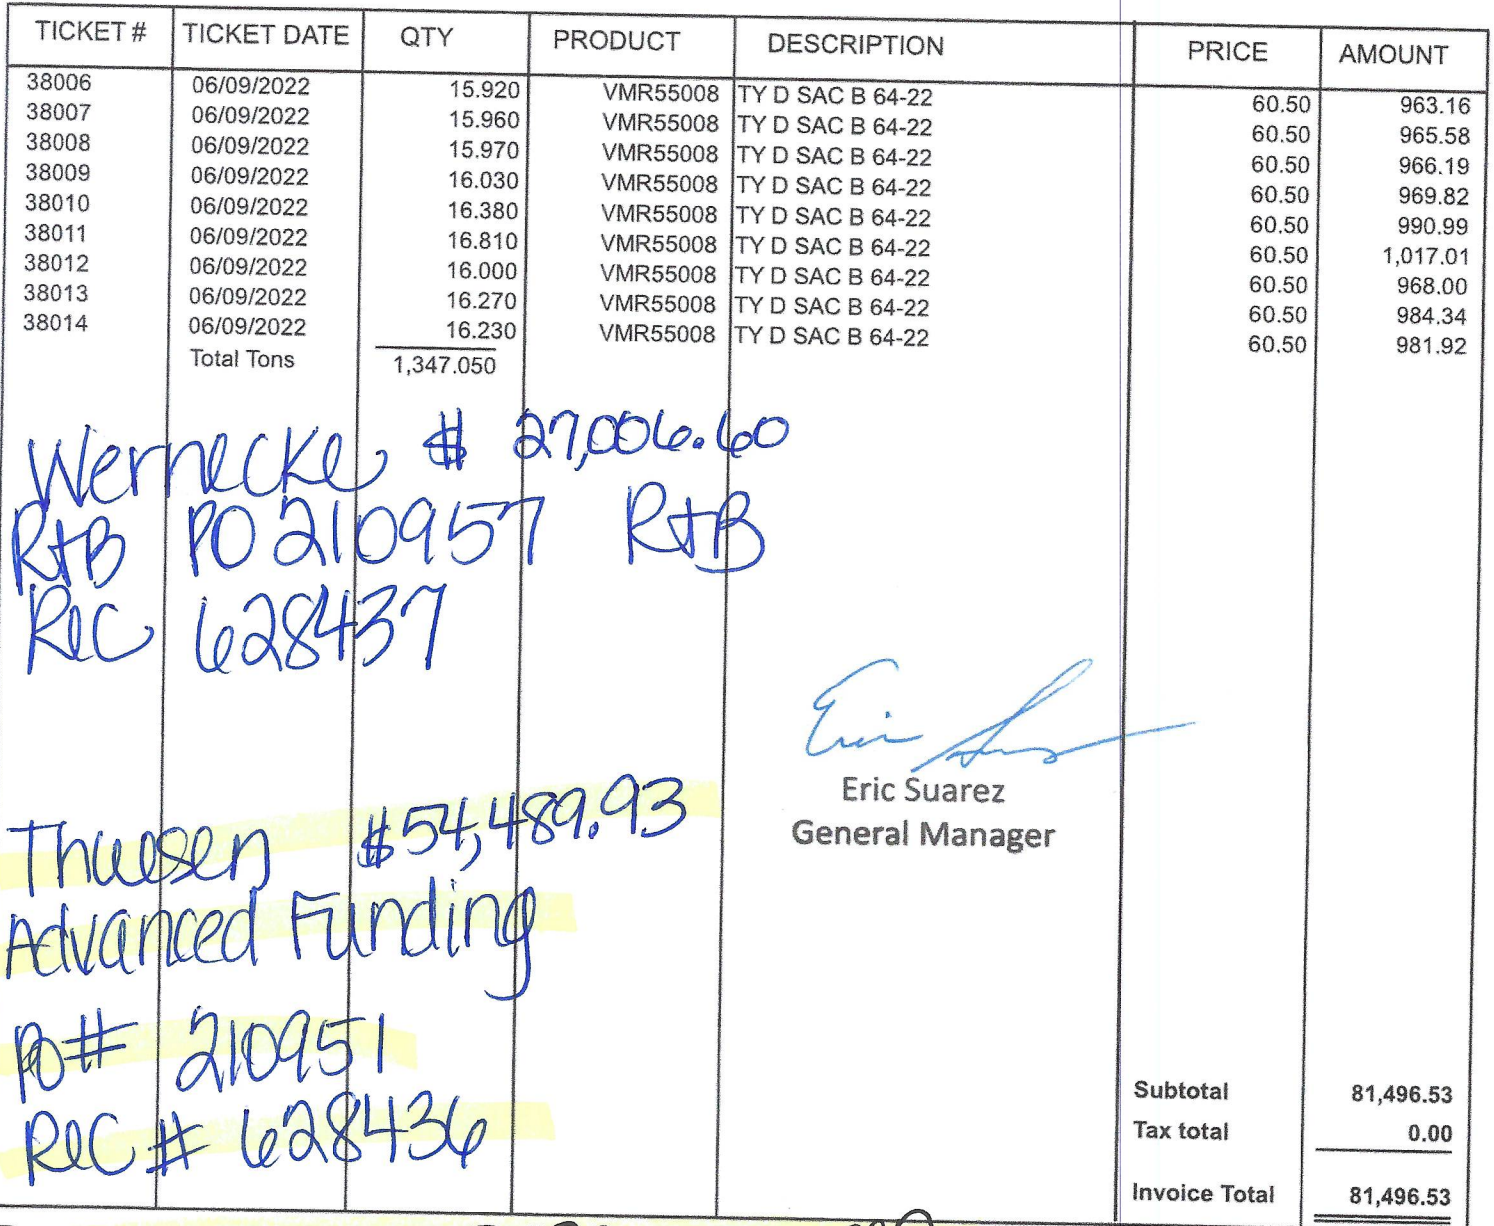 TICKET # TICKET DATE QTY PRODUCT DESCRIPTION PRICE AMOUNT
38006 06/09/2022 15.920 VMR55008 TY D SAC B 64-22 60.50 963.16
38007 06/09/2022 15.960 VMR55008 TY D SAC B 64-22 60.50 965.58
38008 06/09/2022 15.970 VMR55008 TY D SAC B 64-22 60.50 966.19
38009 06/09/2022 16.030 VMR55008 TY D SAC B 64-22 60.50 969.82
38010 06/09/2022 16.380 VMR55008 TY D SAC B 64-22 60.50 990.99
38011 06/09/2022 16.810 VMR55008 TY D SAC B 64-22 60.50 1,017.01
38012 06/09/2022 16.000 VMR55008 TY D SAC B 64-22 60.50 968.00
38013 06/09/2022 16.270 VMR55008 TY D SAC B 64-22 60.50 984.34
38014 06/09/2022 16.230 VMR55008 TY D SAC B 64-22 60.50 981.92
Total Tons 1,347.050
Wernecke $ 27,006.60
R+B PO 210957 R+B
Rec 628437
Eric Suarez
Eric Suarez
General Manager
Thuesen $54,489.93
Advanced Funding
PO# 210951
Rec # 628436
Subtotal 81,496.53
Tax total 0.00
Invoice Total 81,496.53